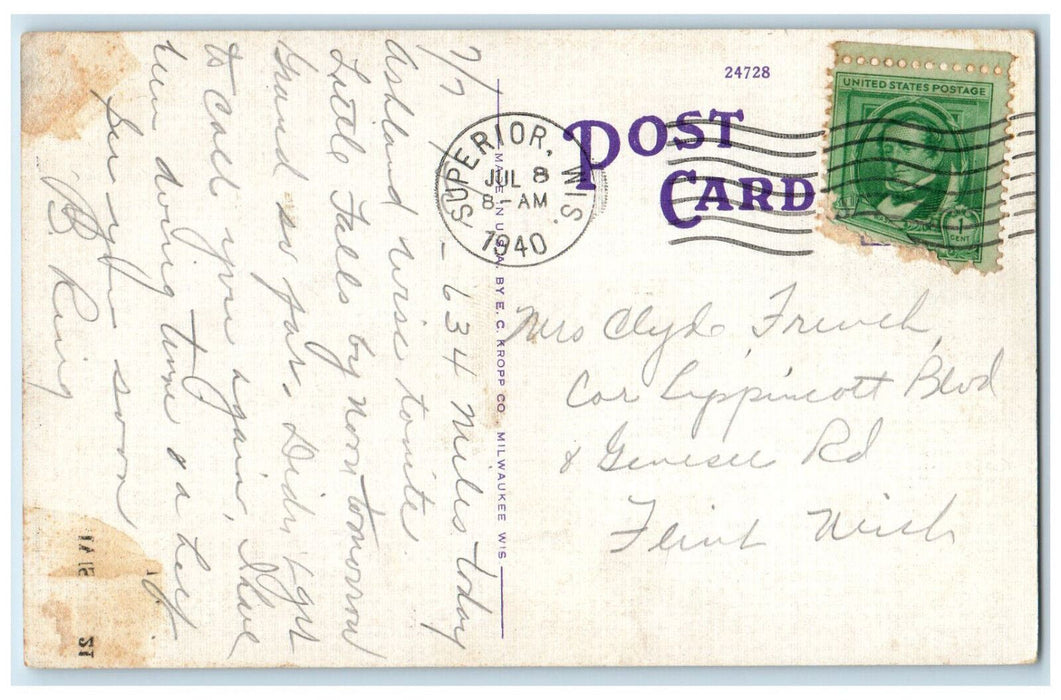 7/7 - 634 miles today
Ashland Wisc tonite
Little Falls by noon tomorrow
Grand so far. Didn't get
to call you again. I have
been driving time
See you soon
King
MADE IN U.S.A. BY E. C. KROPP CO. MILWAUKEE WIS.
24728
POST
CARD
SUPERIOR, WIS.
JUL 8
8-AM
1940
UNITED STATES POSTAGE
1
CENT
Mrs Clyde French
Cor Lippincott Blvd
& Genesee Rd
Flint Mich
21